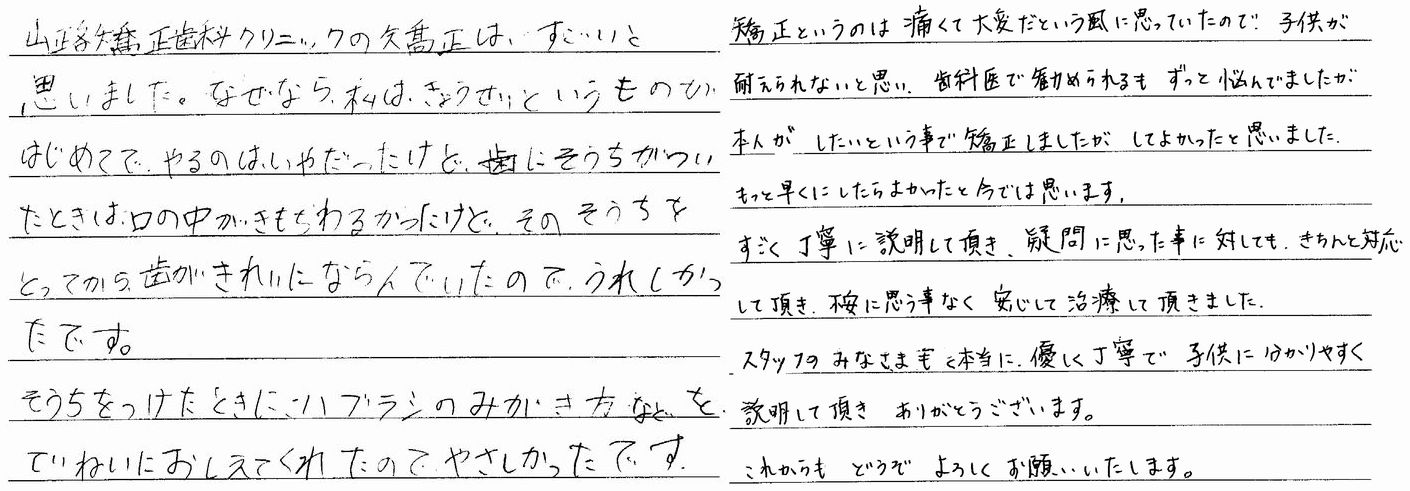 山路矯正歯科クリニックの矯正は、すごいと
思いました。なぜなら、私は、きょうせいというものが
はじめてで、やるのはいやだったけど、歯にそうちがつい
たときは、口の中がきもちわるかったけど、そのそうちを
とってから、歯がきれいにならんでいたので、うれしかっ
たです。
そうちをつけたときに、ハブラシのみがき方などを
ていねいにおしえてくれたので、やさしかったです。
矯正というのは痛くて大変だという風に思っていたので 子供が
耐えられないと思い、歯科医で勧められるも ずっと悩んでましたが
本人が したいという事で矯正しましたが してよかったと思いました。
もっと早くにしたらよかったと今では思います。
すごく丁寧に説明して頂き、疑問に思った事に対しても、きちんと対応
して頂き、不安に思う事なく 安心して治療して頂きました。
スタッフのみなさまも 本当に、優しく丁寧で 子供に分かりやすく
説明して頂き ありがとうございます。
これからも どうぞ よろしく お願いいたします。